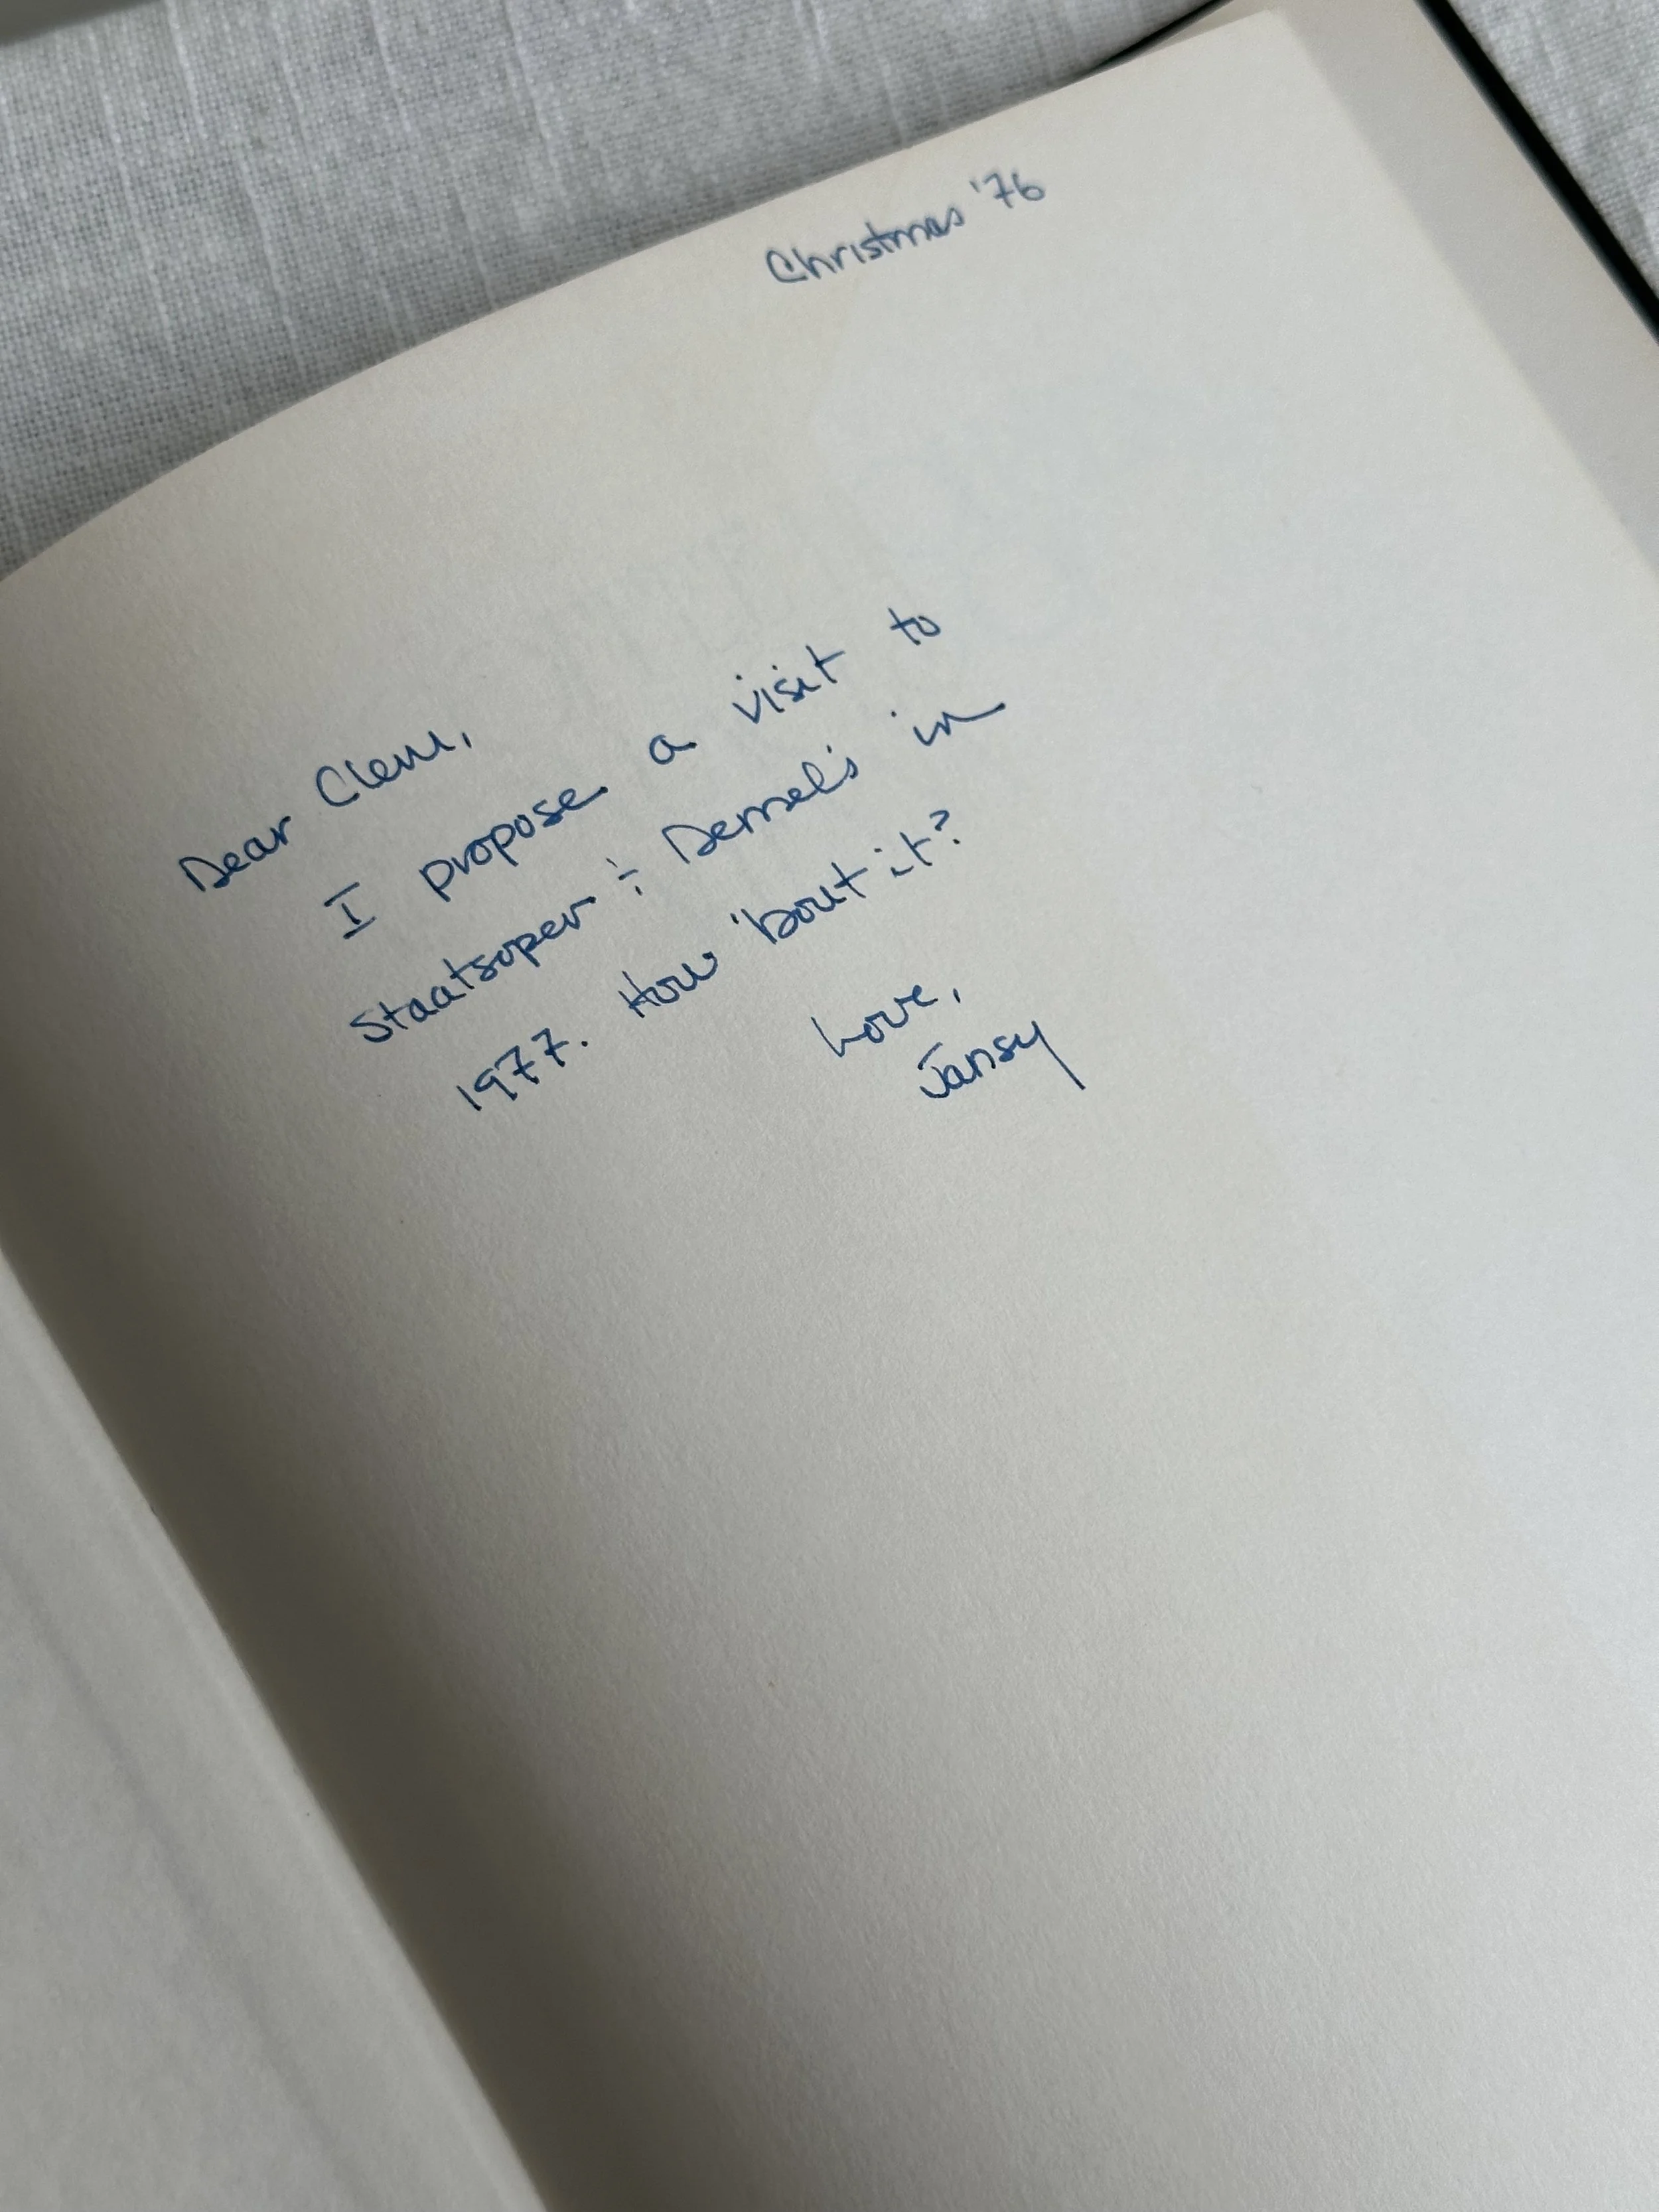 Christmas '76
Dear Clem,
I propose a visit to
Staatsoper + Demel's in
1977. How 'bout it?
Love,
Jansy